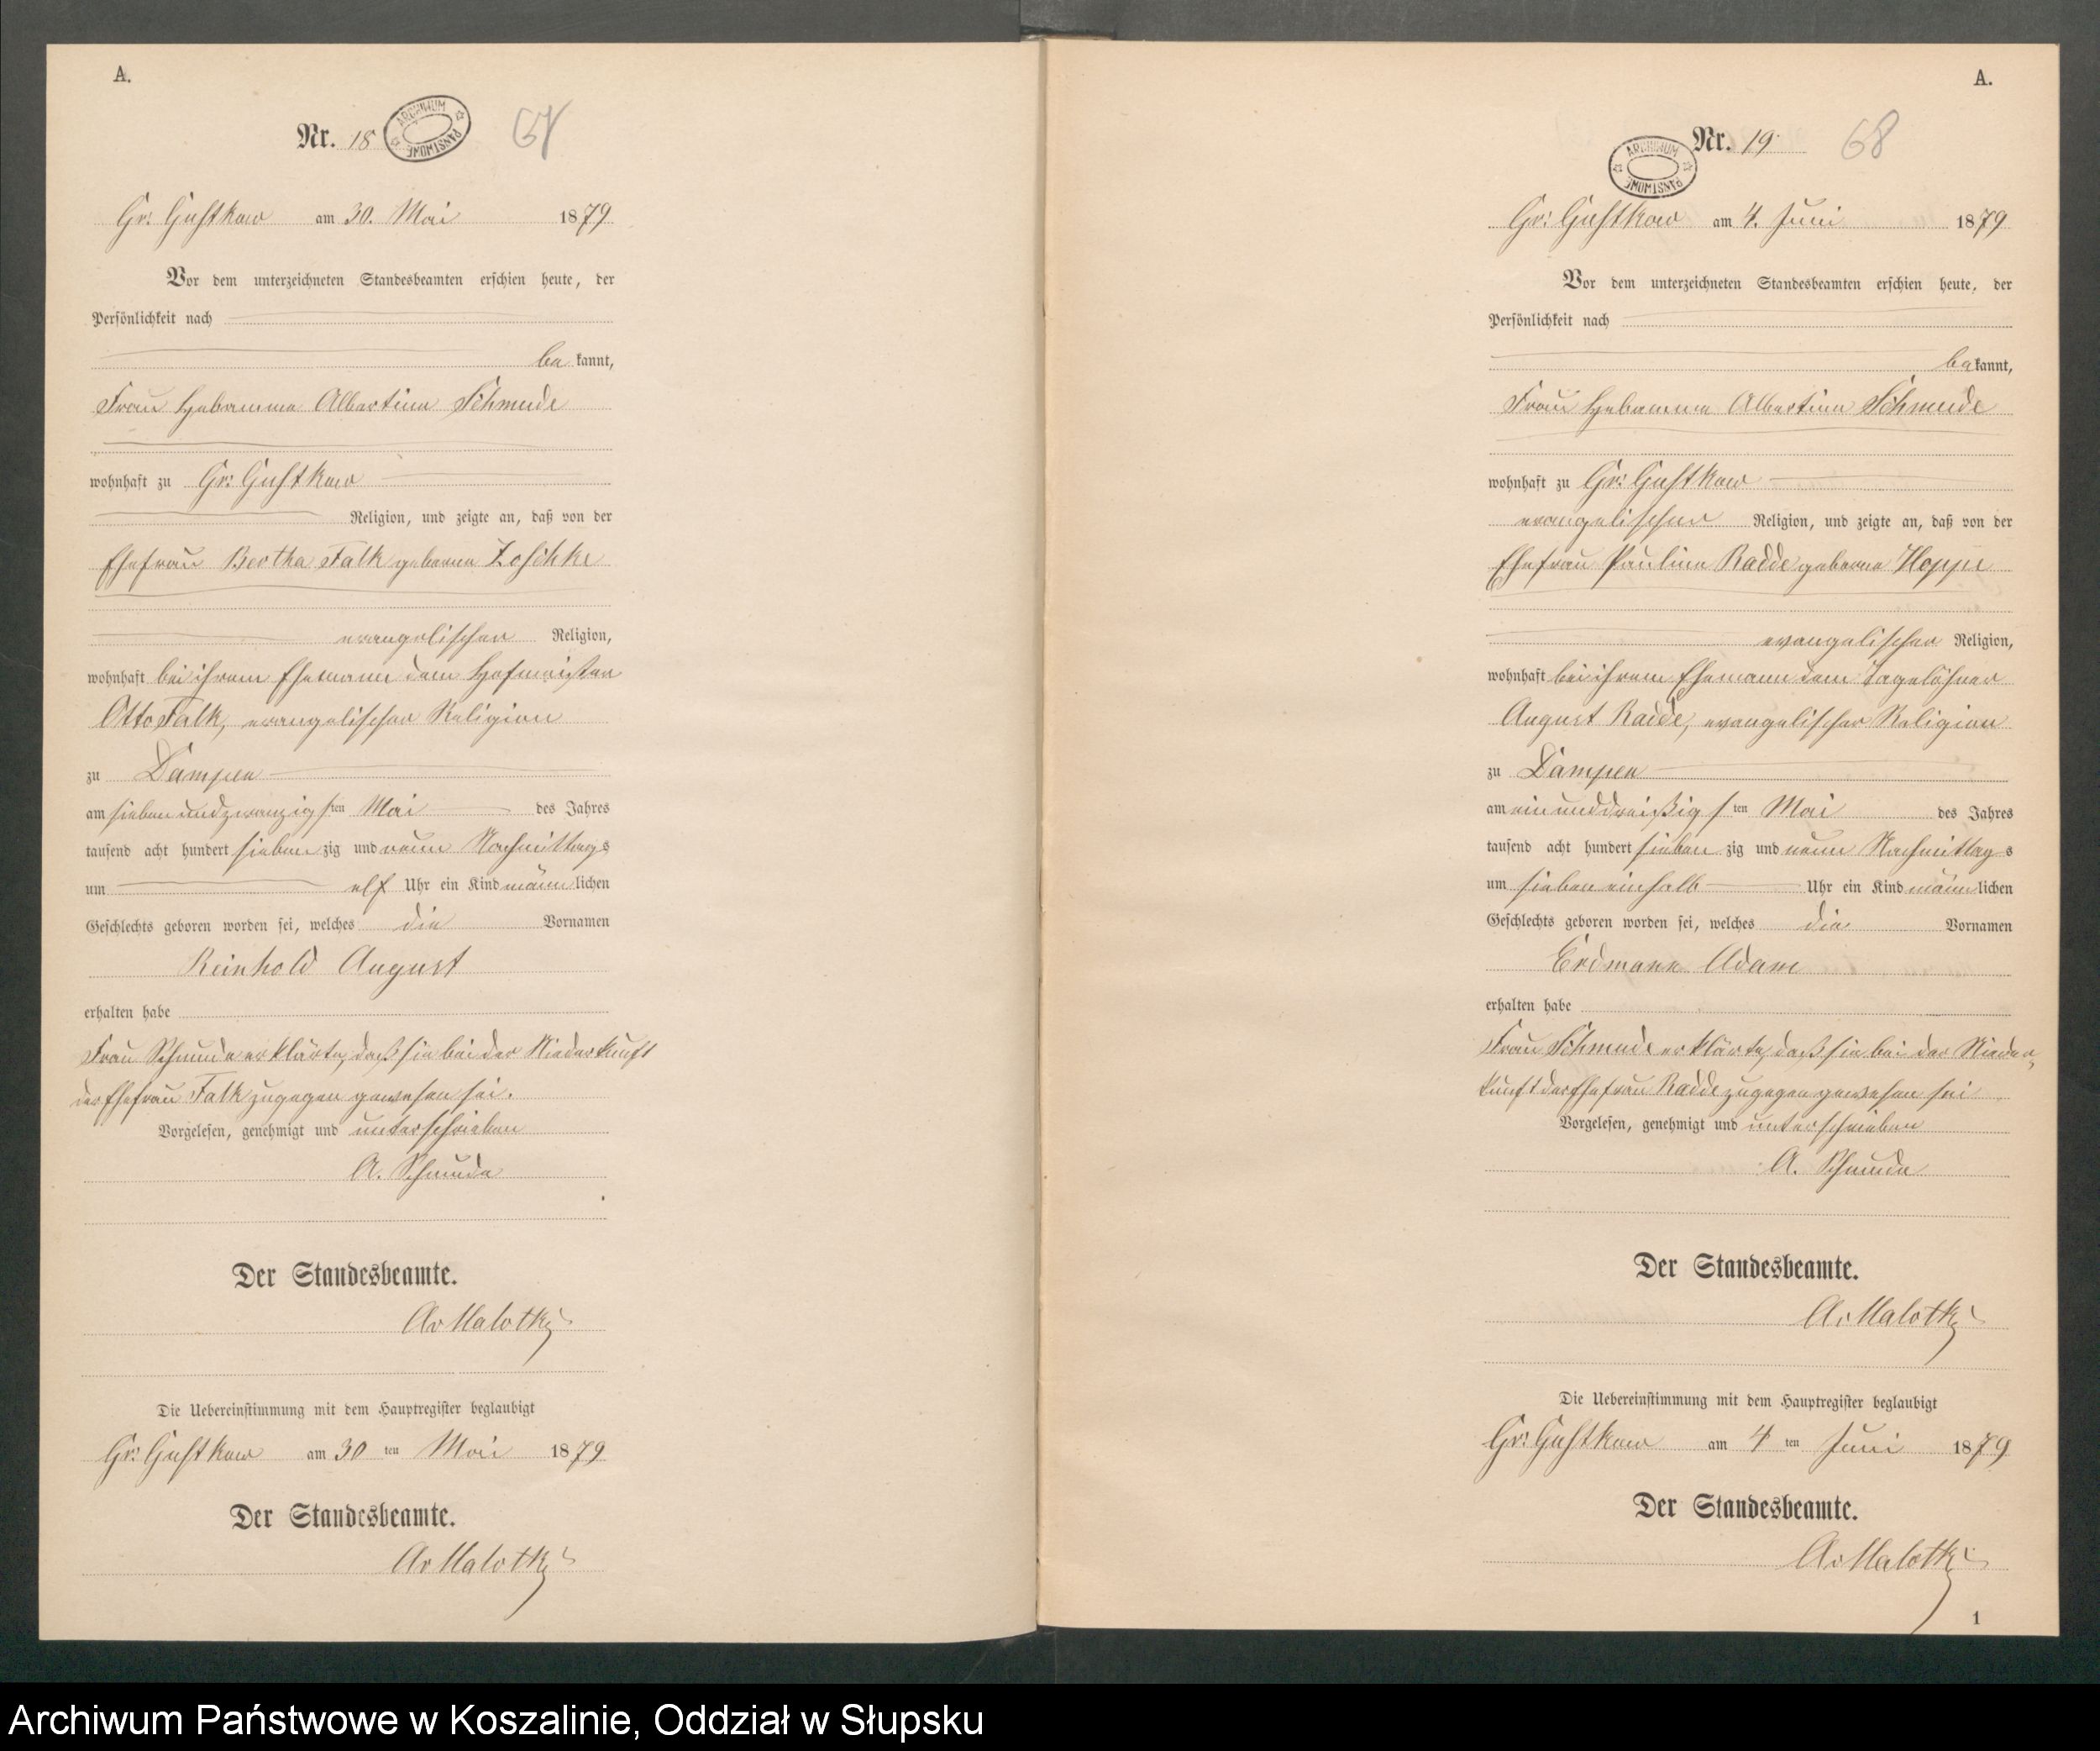 A.
Nr. 18
ARCHIWUM PAŃSTWOWE
67
Gr: Gustkow am 30. Mai 1879
Vor dem unterzeichneten Standesbeamten erschien heute, der
Persönlichkeit nach
be kannt,
Frau Hebamme Albertine Schmude
wohnhaft zu Gr: Gustkow
Religion, und zeigte an, daß von der
Ehefrau Bertha Falk geborne Zoschke
evangelischen Religion,
wohnhaft bei ihrem Ehemann dem Hofmeister
Otto Falk, evangelischer Religion
zu Dampen
am sieben und zwanzigsten Mai des Jahres
tausend acht hundert siebenzig und neun Nachmittags
um elf Uhr ein Kind männlichen
Geschlechts geboren worden sei, welches die Vornamen
Reinhold August
erhalten habe
Frau Schmude erklärte, daß sie bei der Niederkunft
der Ehefrau Falk zugegen gewesen sei.
Vorgelesen, genehmigt und unterschrieben
A. Schmude
Der Standesbeamte.
Av Malotki
Die Uebereinstimmung mit dem Hauptregister beglaubigt
Gr: Gustkow am 30 ten Mai 1879
Der Standesbeamte.
Av Malotki
A.
Nr. 19
ARCHIWUM PAŃSTWOWE
68
Gr: Gustkow am 4. Juni 1879
Vor dem unterzeichneten Standesbeamten erschien heute, der
Persönlichkeit nach
bekannt,
Frau Hebamme Albertine Schmude
wohnhaft zu Gr: Gustkow
evangelischer Religion, und zeigte an, daß von der
Ehefrau Pauline Radde geborne Hoppe
evangelischer Religion,
wohnhaft bei ihrem Ehemann dem Tagelöhner
August Radde, evangelischer Religion
zu Dampen
am ein und dreißigsten Mai des Jahres
tausend acht hundert siebenzig und neun Nachmittags
um sieben einhalb Uhr ein Kind männlichen
Geschlechts geboren worden sei, welches die Vornamen
Erdmann Adam
erhalten habe
Frau Schmude erklärte, daß sie bei der Nieder-
kunft der Ehefrau Radde zugegen gewesen sei
Vorgelesen, genehmigt und unterschrieben
A. Schmude
Der Standesbeamte.
Av Malotki
Die Uebereinstimmung mit dem Hauptregister beglaubigt
Gr: Gustkow am 4 ten Juni 1879
Der Standesbeamte.
Av Malotki
1
Archiwum Państwowe w Koszalinie, Oddział w Słupsku